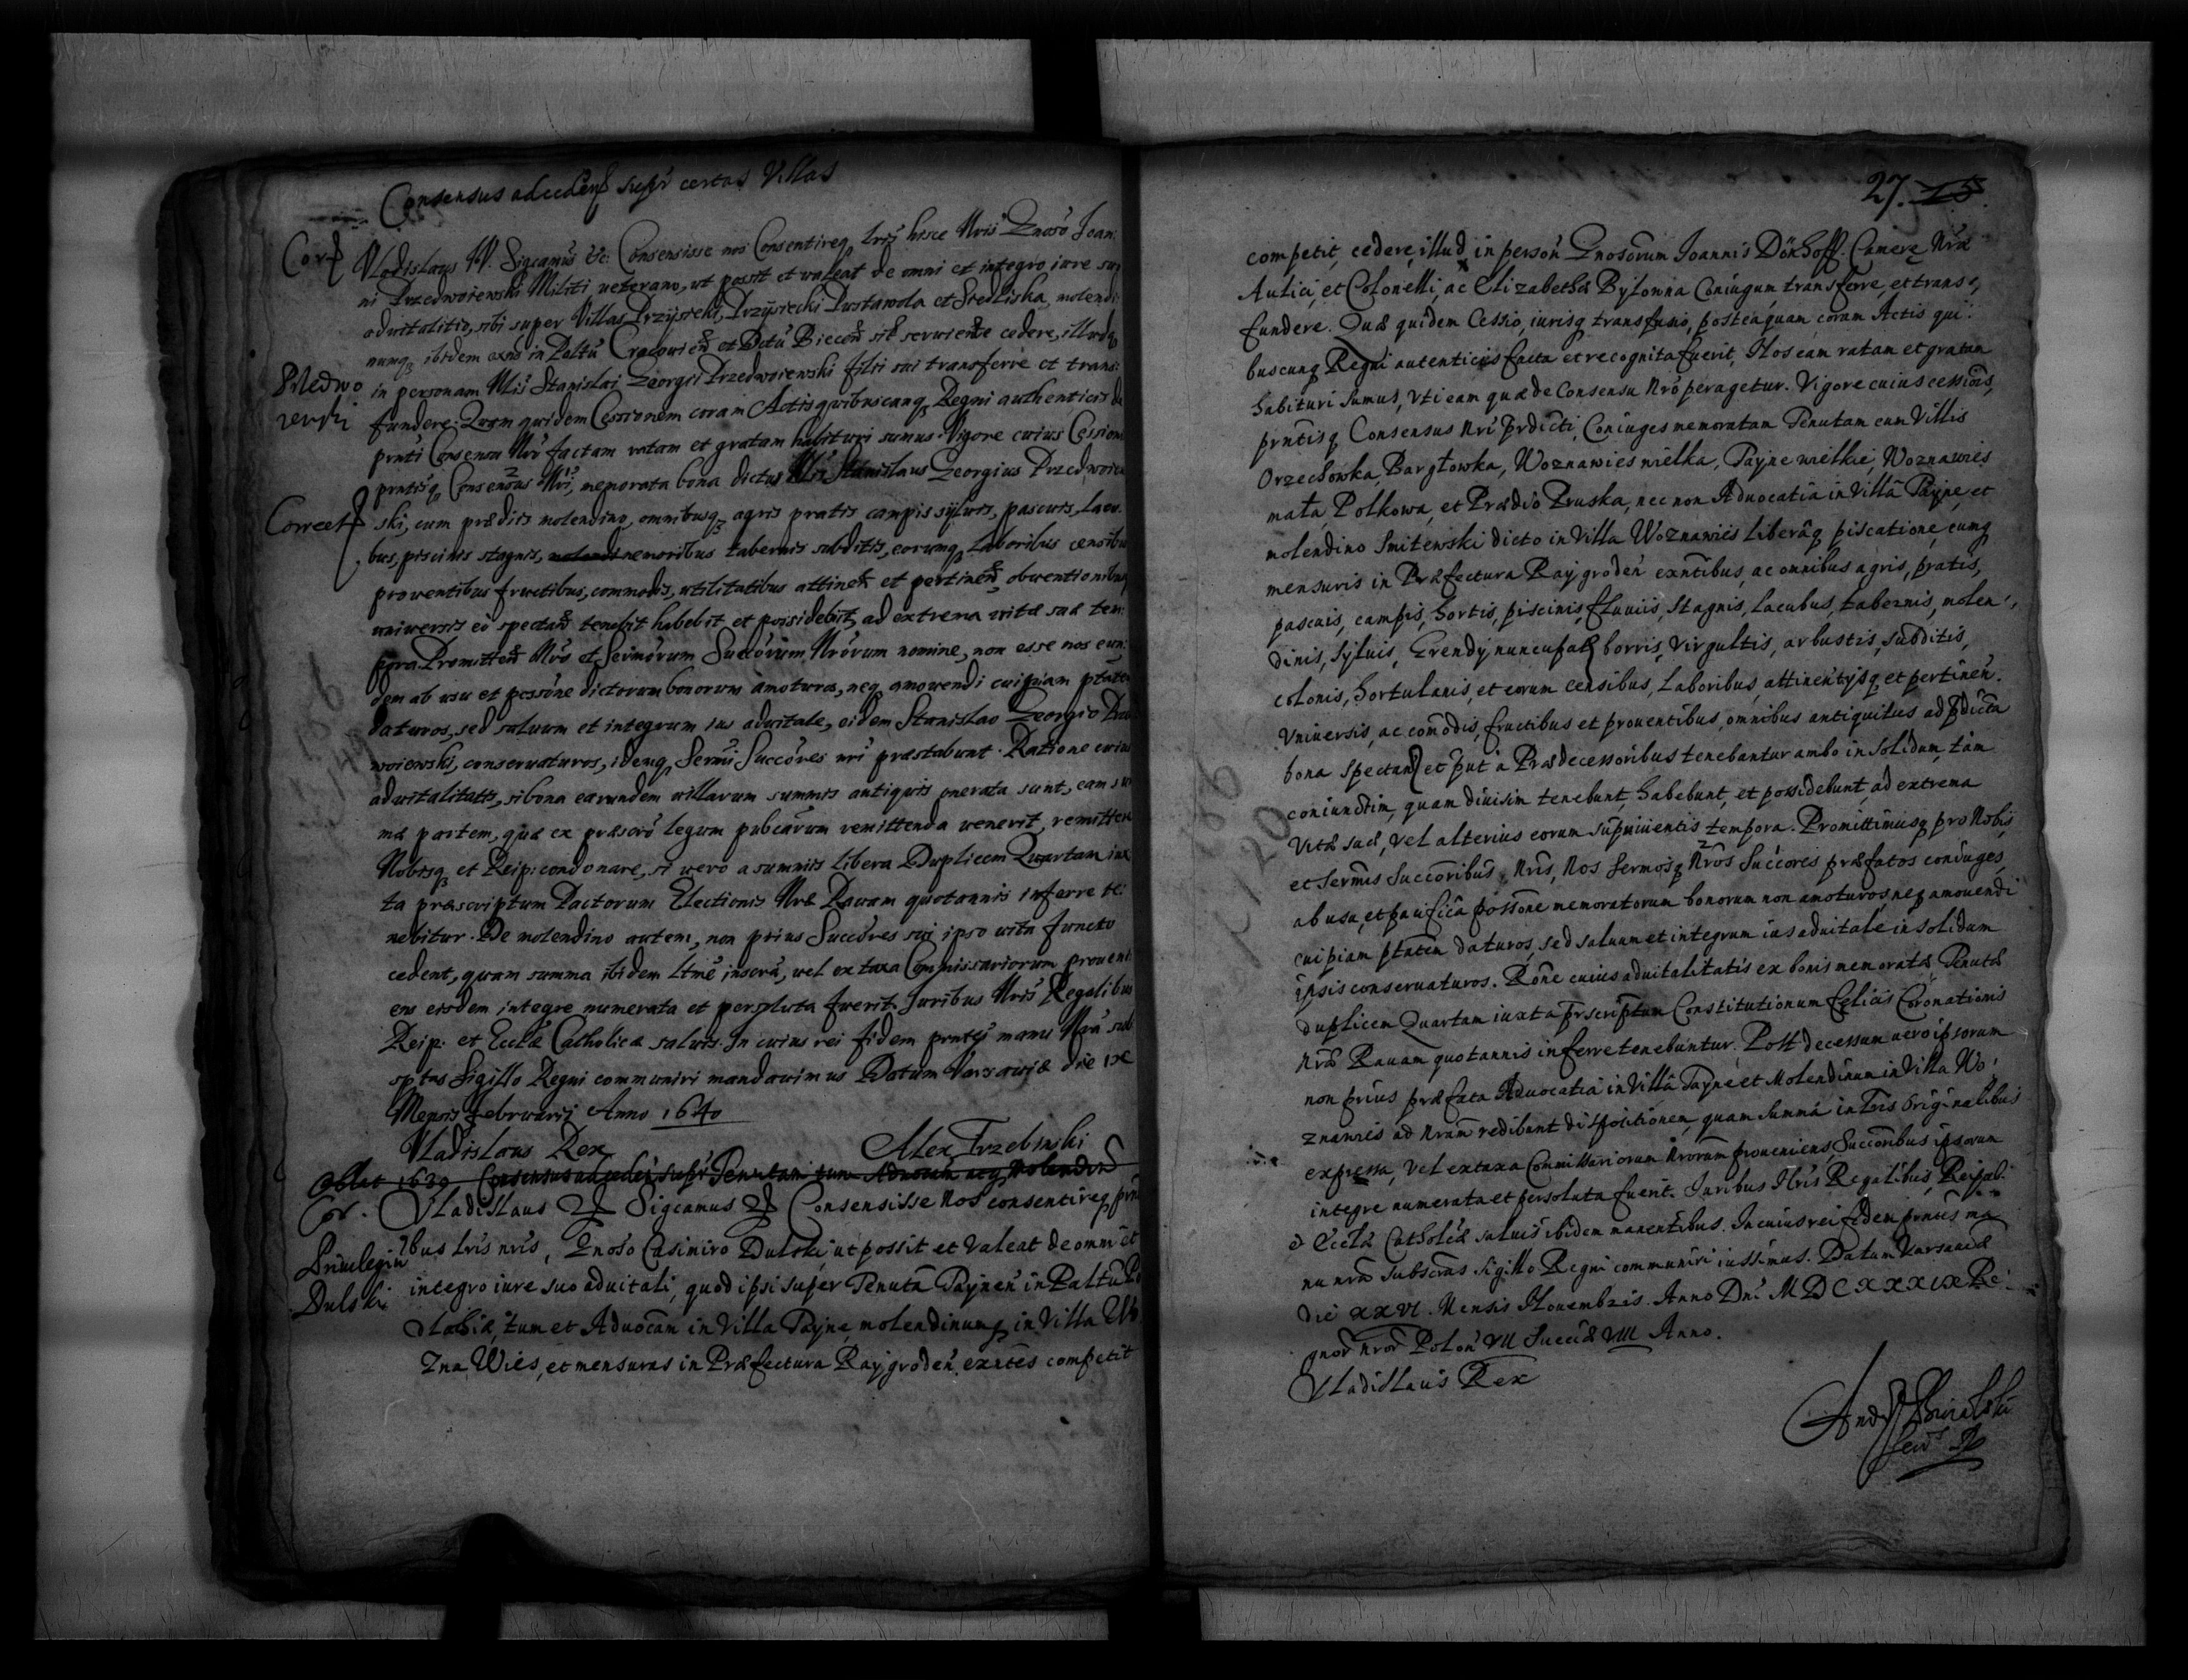 Consensus ad cedend supr certas Villas
Corf Vladislaus IV. Sigcamus etc: Consensisse nos Consentireq lris hisce Nris Gnoso Joan:
ni Przedwoiewski Militi veterano, ut possit et valeat de omni et integro iure suo
advitalitio, sibi super Villas Przysieki, Przysiecki Pustawola et Siedliska, molendi:
numq ibidem exns in Paltu Cracovien et Dctu Biecen sit serviente cedere, illudq
Przedwo
iewski
in personam Nlis Stanislai Georgii Przedwoiewski filii sui transferre et trans:
fundere. Quam quidem Cessionem coram Actis quibuscunq Regni authenticis de
prnti Consensu Nro factam ratam et gratam habituri sumus. Vigore cuius Cessionis
prntisq Consensus Nri, memorata bona dictus Nlis Stanislaus Georgius Przedwoiew
Correct ski, cum prædiis molendino, omnibusq agris pratis campis sylvis, pascuis, lacu:
bus, piscinis stagnis, nemoribus tabernis subditis, eorumq laboribus censibus
proventibus fructibus, commodis, utilitatibus attinen et pertinen, obventionibusq
universis eo spectan tenebit habebit et possidebit, ad extrema vitæ suæ tem:
pora. Promitten Nro et Sermorum Succorum Nrorum nomine, non esse nos eun:
dem ab usu et possone dictorum bonorum amoturos, neq amovendi cuipiam ptatem
daturos, sed salvum et integrum ius advitale, eidem Stanislao Georgio Przed
woiewski, conservaturos, idemq Sermi Succores nri præstabunt. Ratione cuius
advitalitatis, si bona earundem villarum summis antiquis onerata sunt, eam sum
mæ partem, quæ ex præscro legum pubcarum remittenda venerit, remittere
Nobisq et Reip: condonare, si vero a summis libera Duplicem Quartam iux
ta præscriptum Pactorum Electionis Nræ Ravam quotannis inferre te:
nebitur. De molendino autem, non prius Succores sui ipso vita functo
cedent, quam summa ibidem ltme inscra, vel ex taxa Commissariorum proveni
ens eisdem integre numerata et persoluta fuerit. Juribus Nris Regalibus
Reip: et Ecclæ Catholicæ salvis. In cuius rei fidem prntes manu Nra sub
sptas Sigillo Regni communiri mandavimus Datum Varsaviæ die IX
Mensis februarii Anno 1640
Vladislaus Rex Alex Trzebinski
Oblat 1639 Consensus ad ceden supr Tenutam tum Advocan neq Molendino
Cor. Vladislaus Sigcamus Consensisse Nos consentireq prnti
Privilegium
Dulski
bus lris nris, Gnoso Casimiro Dulski ut possit et valeat de omni et
integro iure suo advitali, quod ipsi super Tenuta Paynen in Paltu Po
dlahiæ, tum et Advocam in Villa Payne, molendinumq in Villa Wo
zna Wies, et mensuras in Præfectura Raygroden exntes competit
27. 25
competit, cedere, illud in person Gnosorum Joannis Dönhoff. Cameræ Nræ
Aulici, et Colonelli, ac Elizabethæ Bylonna Coniugum transferre, et trans:
fundere. Quæ quidem Cessio, iurisq transfusio, postea quam coram Actis qui:
buscunq Regni autenticis facta et recognita fuerit, Nos eam ratam et gratam
habituri sumus, uti eam quæ de Consensu Nro peragetur. Vigore cuius cessionis,
prntisq Consensus nri prdicti, Coniuges memoratam Tenutam cum Villis
Orzechowka, Bargłowka, Woznawies wielka, Payne wielkie, Woznawies
mała, Polkowa, et Prædio Pruska, nec non Advocatia in Villa Payne, et
molendino Smitewski dicto in Villa Woznawies liberaq piscatione, cumq
mensuris in Præfectura Raygroden exntibus, ac omnibus agris, pratis,
pascuis, campis, hortis, piscinis, fluviis, stagnis, lacubus, tabernis, molen:
dinis, sylvis, Grendy nuncupat borris, virgultis, arbustis, subditis,
colonis, hortulanis, et eorum censibus, laboribus, attinentysq et pertinen.
Universis, ac comodis, fructibus et proventibus, omnibus antiquitus ad pdicta
bona spectan et put a Prædecessoribus tenebantur ambo in solidum, tam
coniunctim, quam divisim tenebunt habebunt, et possidebunt, ad extrema
vitæ suæ, vel alterius eorum supviventis tempora. Promittimusq pro Nobis,
et Sermis Succoribus Nris, Nos Sermosq Nros Succores præfatos coniuges,
ab usu, et pacifica possone memoratorum bonorum non amoturos, neq amovendi
cuipiam ptatem daturos, sed salvum et integrum ius advitale in solidum
ipsis conservaturos. Rone cuius advitalitatis ex bonis memoratæ Tenutæ
duplicem Quartam iuxta prscriptum Constitutionum felicis Coronationis
Nræ Ravam quotannis inferre tenebuntur. Post decessum vero ipsorum
non prius præfata Advocatia in Villa Payne et Molendinum in Villa Wo:
znawies ad nram redibunt dispositionem, quam summa in lris originalibus
expressa, vel ex taxa Commissariorum nrorum proveniens Succoribus ipsorum
integre numerata et persoluta fuerit. Juribus Nris Regalibus, Reipub:
& Ecclæ Catholicæ salvis ibidem manentibus. In cuius rei fidem prntes ma
nu nra subscras sigillo Regni communiri iussimus. Datum Varsaviæ
die XXVI. Mensis Novembris. Anno Dni MDCXXXIX Re:
gnor nror Polon VII Sueciæ VIII Anno.
Vladislaus Rex